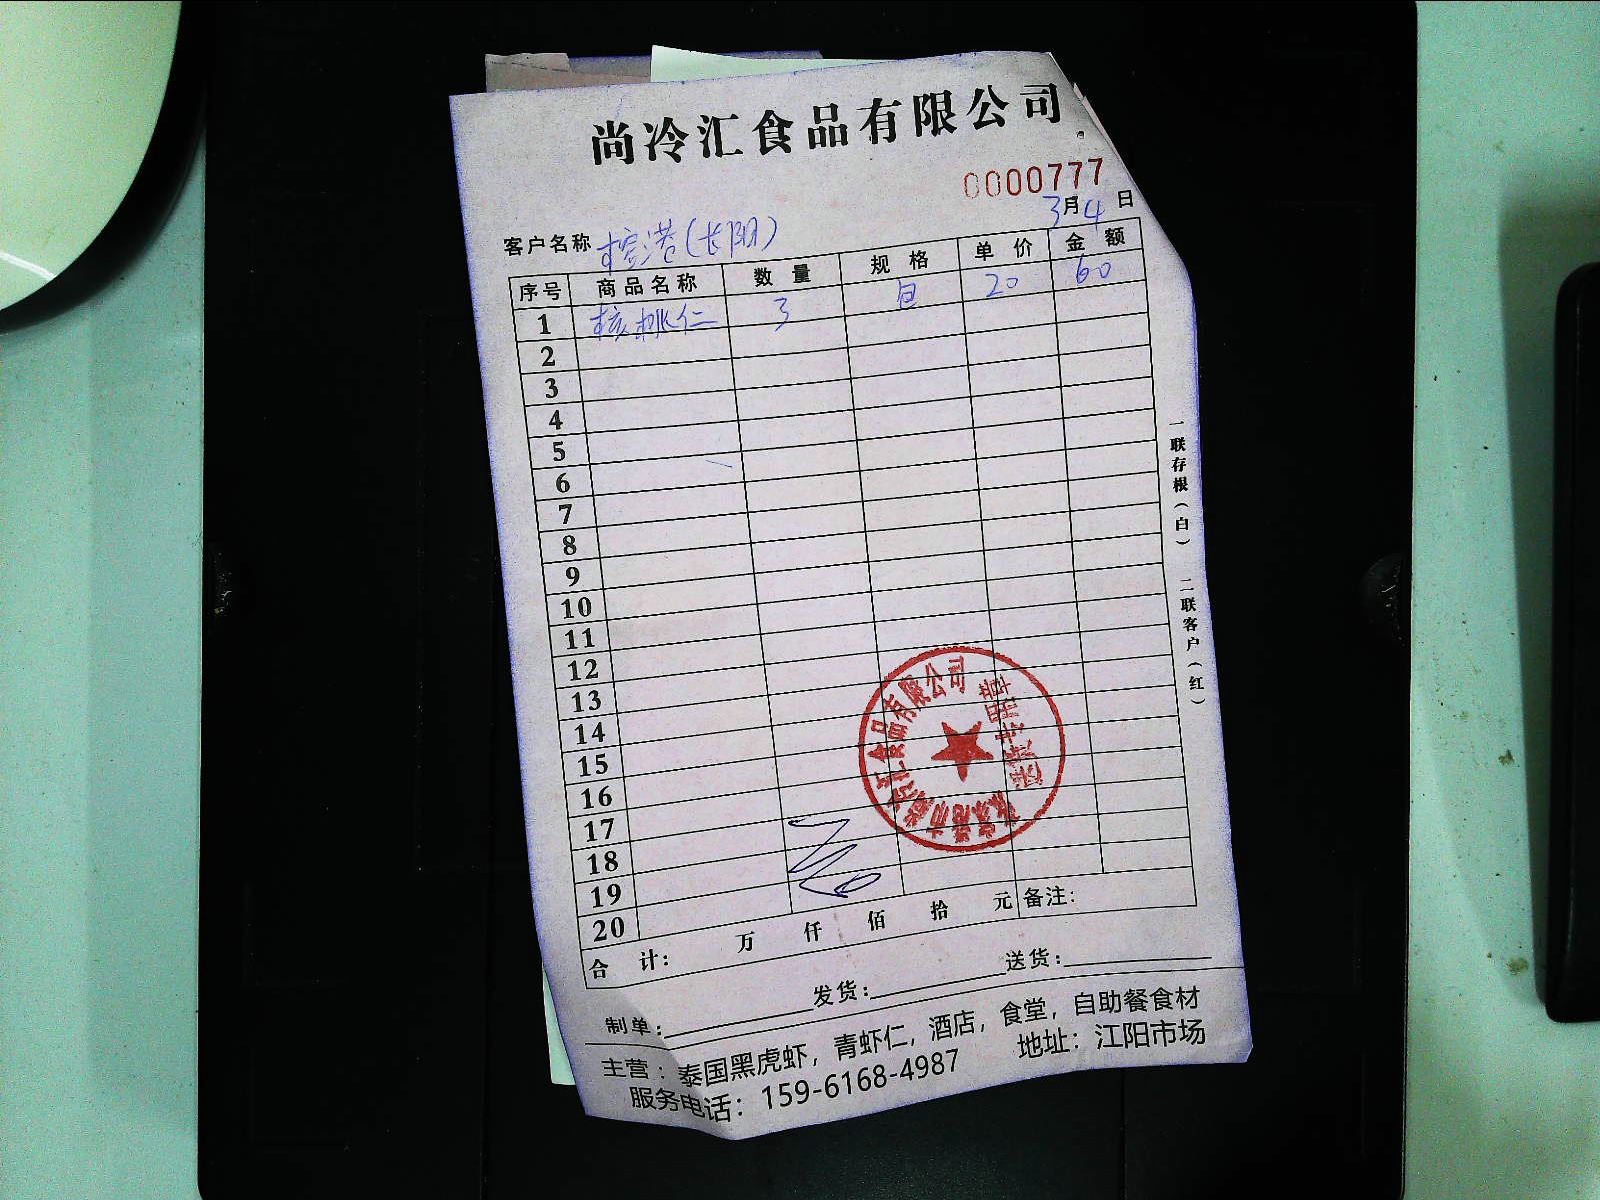 尚冷汇食品有限公司
0000777
3月4日
客户名称 港(长阳)
序号 商品名称 数量 规格 单价 金额
1 核桃仁 3 包 20 60
2
3
4
5
6
7
8
9
10
11
12
13
14
15
16
17
18
19
20
合计: 万 仟 佰 拾 元 备注:
制单: 发货: 送货:
主营：泰国黑虎虾，青虾仁，酒店，食堂，自助餐食材
服务电话：159-6168-4987 地址：江阳市场
一联存根(白) 二联客户(红)
张家港市尚冷汇食品有限公司